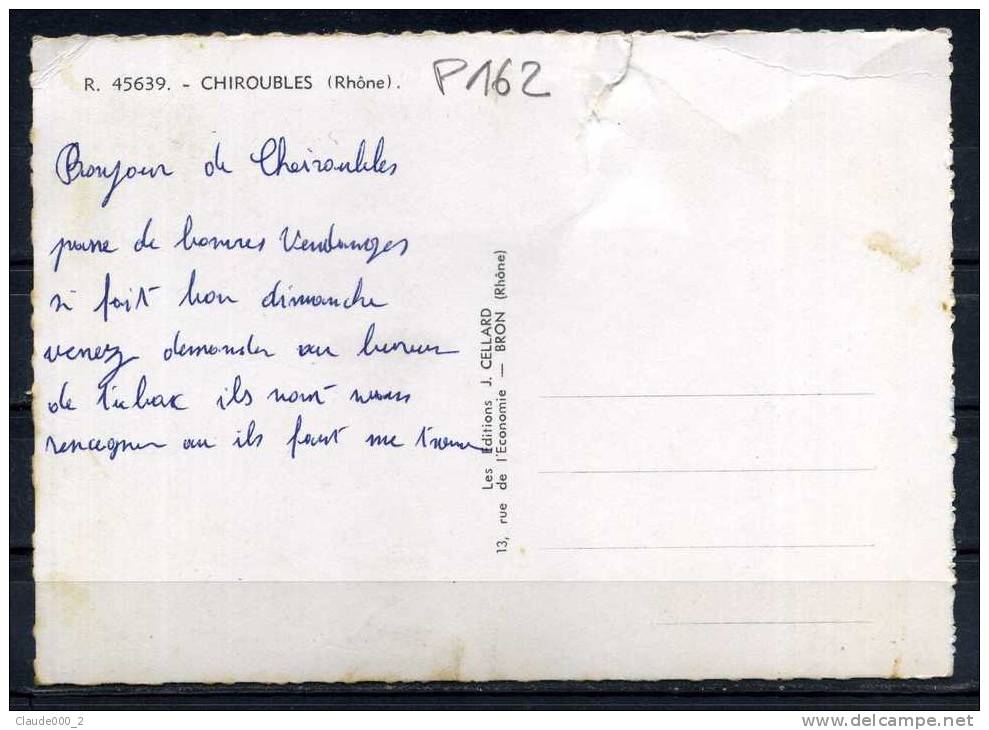 R. 45639. - CHIROUBLES (Rhône).
P162
Bonjour de Cheiroubles
passe de bonnes Vendanges
si fait bon dimanche
venez demander au bureau
de tabac ils vont vous
rencegner ou ils faut me trouver
Les Editions J. CELLARD
13, rue de l'Economie — BRON (Rhône)
Claude000_2
www.delcampe.net